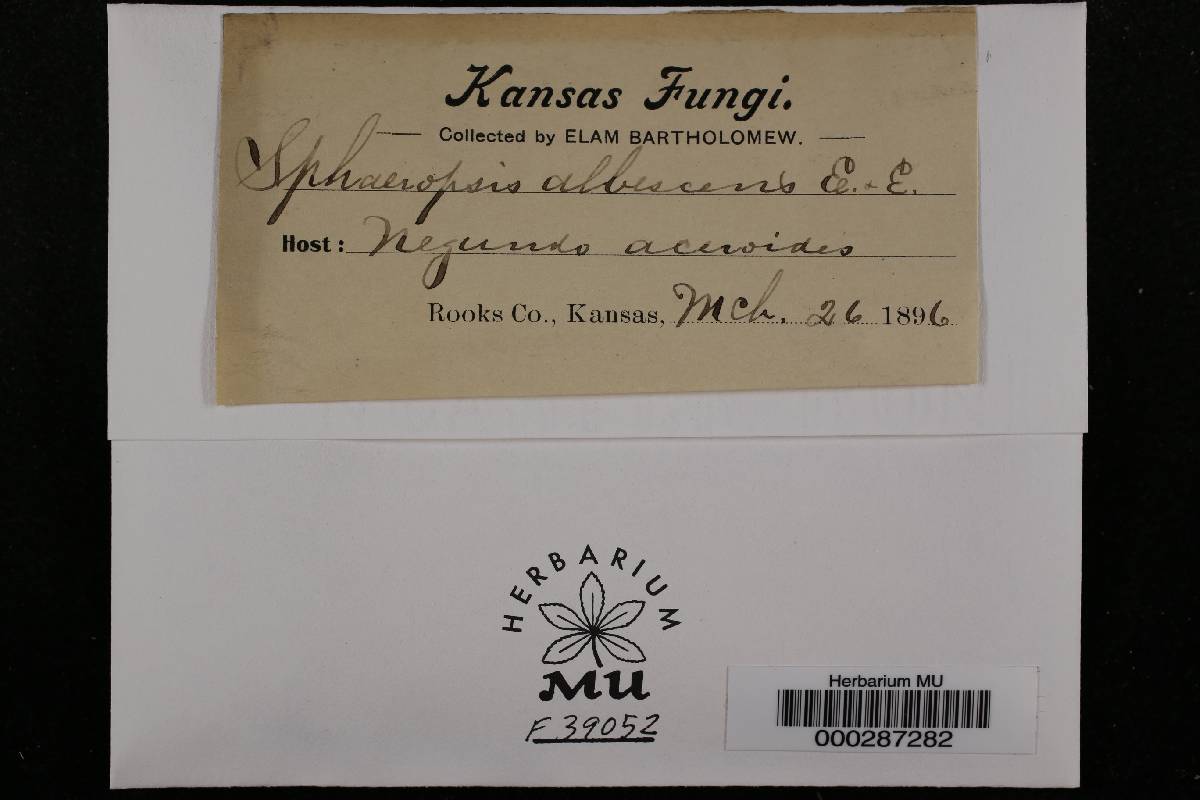 Kansas Fungi.
Collected by ELAM BARTHOLOMEW.
Sphaeropsis albescens E. & E.
Host: Negundo aceroides
Rooks Co., Kansas, Mch. 26 1896
HERBARIUM
MU
F 39052
Herbarium MU
000287282